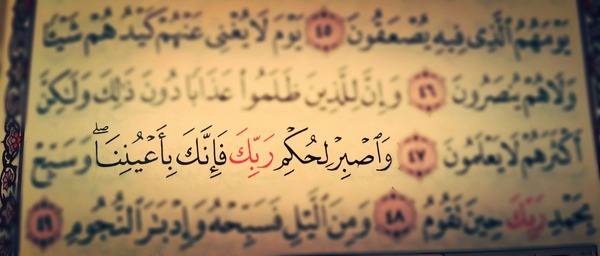 يَوْمَهُمُ ٱلَّذِى فِيهِ يُصْعَقُونَ ٤٥ يَوْمَ لَا يُغْنِى عَنْهُمْ كَيْدُهُمْ شَيْـًٔا
وَلَا هُمْ يُنصَرُونَ ٤٦ وَإِنَّ لِلَّذِينَ ظَلَمُوا۟ عَذَابًا دُونَ ذَٰلِكَ وَلَٰكِنَّ
أَكْثَرَهُمْ لَا يَعْلَمُونَ ٤٧ وَٱصْبِرْ لِحُكْمِ رَبِّكَ فَإِنَّكَ بِأَعْيُنِنَا ۖ وَسَبِّحْ
بِحَمْدِ رَبِّكَ حِينَ تَقُومُ ٤٨ وَمِنَ ٱلَّيْلِ فَسَبِّحْهُ وَإِدْبَٰرَ ٱلنُّجُومِ ٤٩